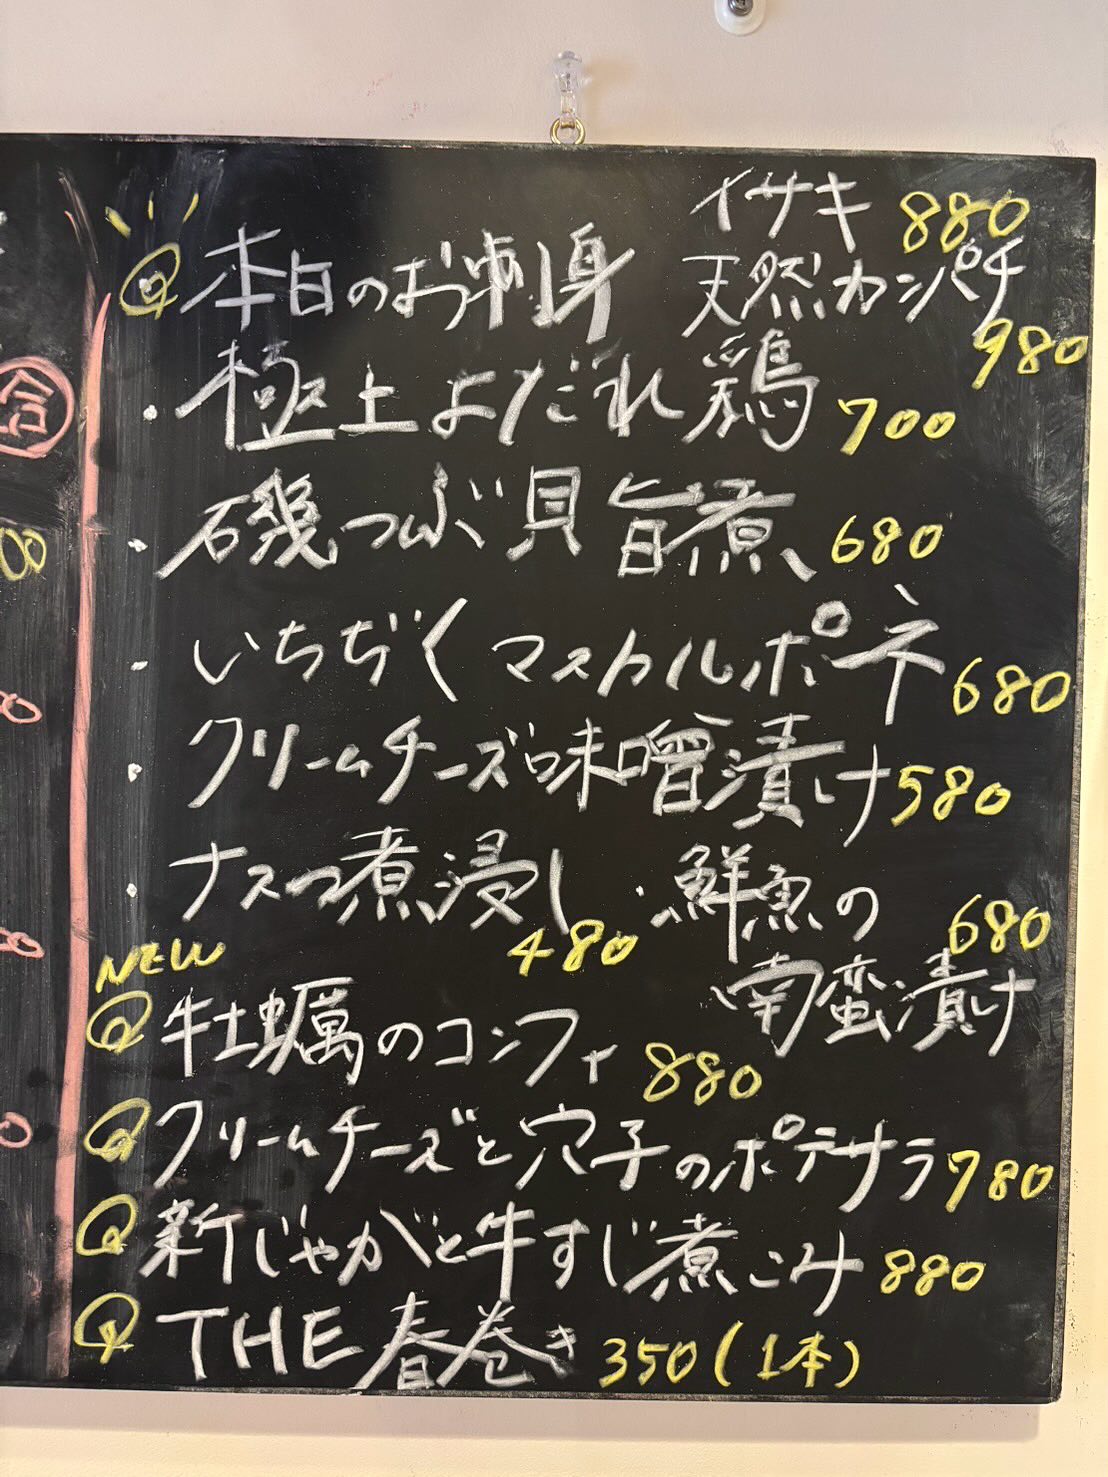 イサキ 880
本日のお刺身 天然カンパチ
980
・極上よだれ鶏 700
・磯つぶ貝 旨煮 680
・いちぢくマスカルポーネ 680
・クリームチーズ味噌漬け 580
・ナスの煮浸し 480
・鮮魚の 680
南蛮漬け
NEW
牡蠣のコンフィ 880
クリームチーズと穴子のポテサラ 780
新じゃがと牛すじ煮こみ 880
THE 春巻き 350(1本)